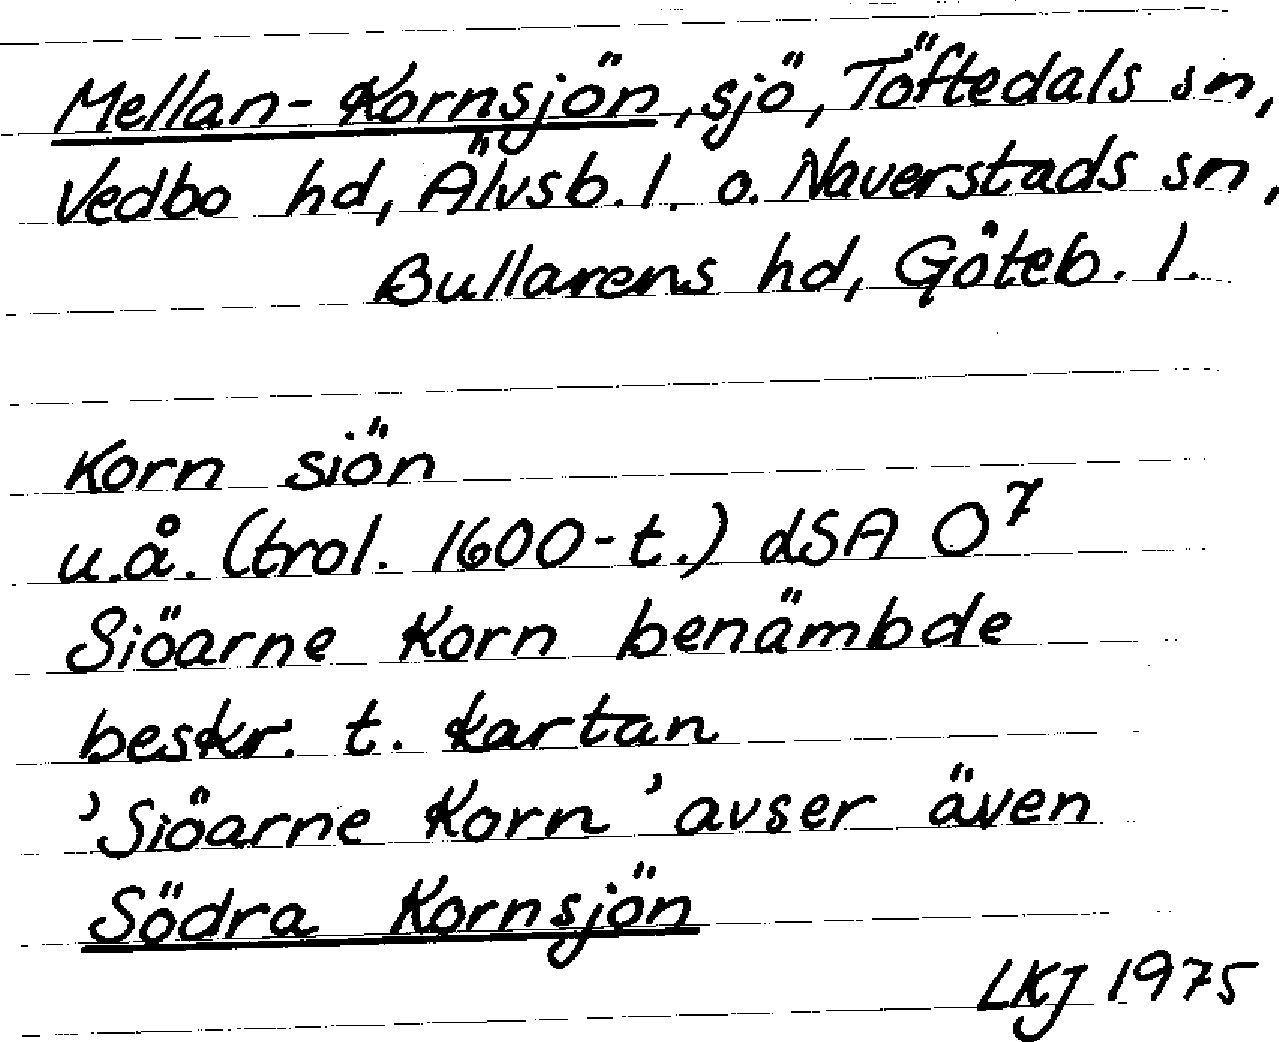 Mellan-Kornsjön, sjö, Töftedals sn,
Vedbo hd, Älvsb. l. o. Naverstads sn,
Bullarens hd, Göteb. l.
Korn siön
u.å. (trol. 1600-t.) dSA O⁷
Siöarne Korn benämbde
beskr. t. kartan
'Siöarne Korn' avser även
Södra Kornsjön
LKJ 1975